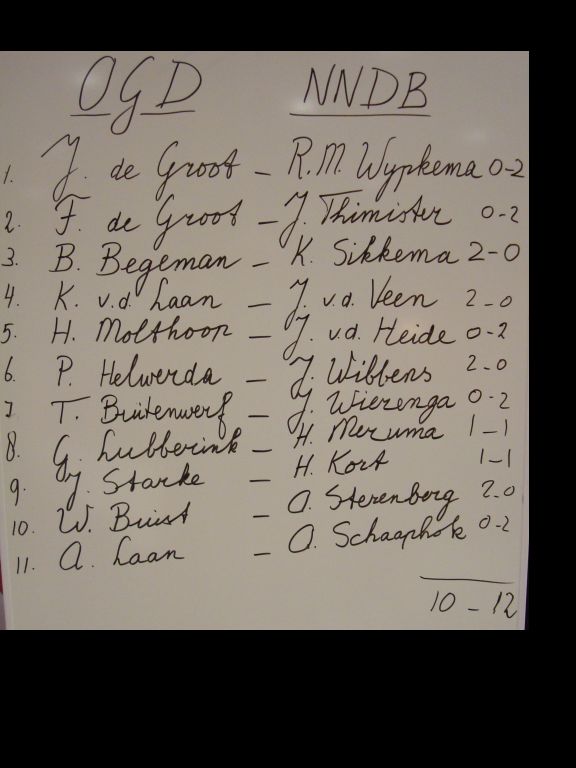 OGD NNDB
1. J. de Groot - R.M. Wypkema 0-2
2. F. de Groot - J. Thimister 0-2
3. B. Begeman - K. Sikkema 2-0
4. K. v.d. Laan - J. v.d. Veen 2-0
5. H. Molthoop - J. v.d. Heide 0-2
6. P. Helwerda - J. Wibbens 2-0
7. T. Bruitenwerf - J. Wierenga 0-2
8. G. Lubberink - H. Meruma 1-1
9. J. Starke - H. Kort 1-1
10. W. Buist - A. Sterenberg 2-0
11. A. Laan - A. Schaaphok 0-2
10-12